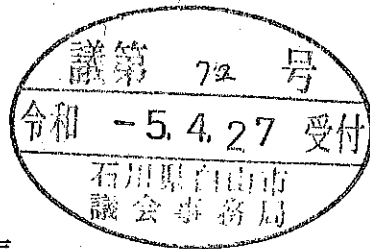 議第 72 号
令和 -5.4.27 受付
石川県白山市
議会事務局